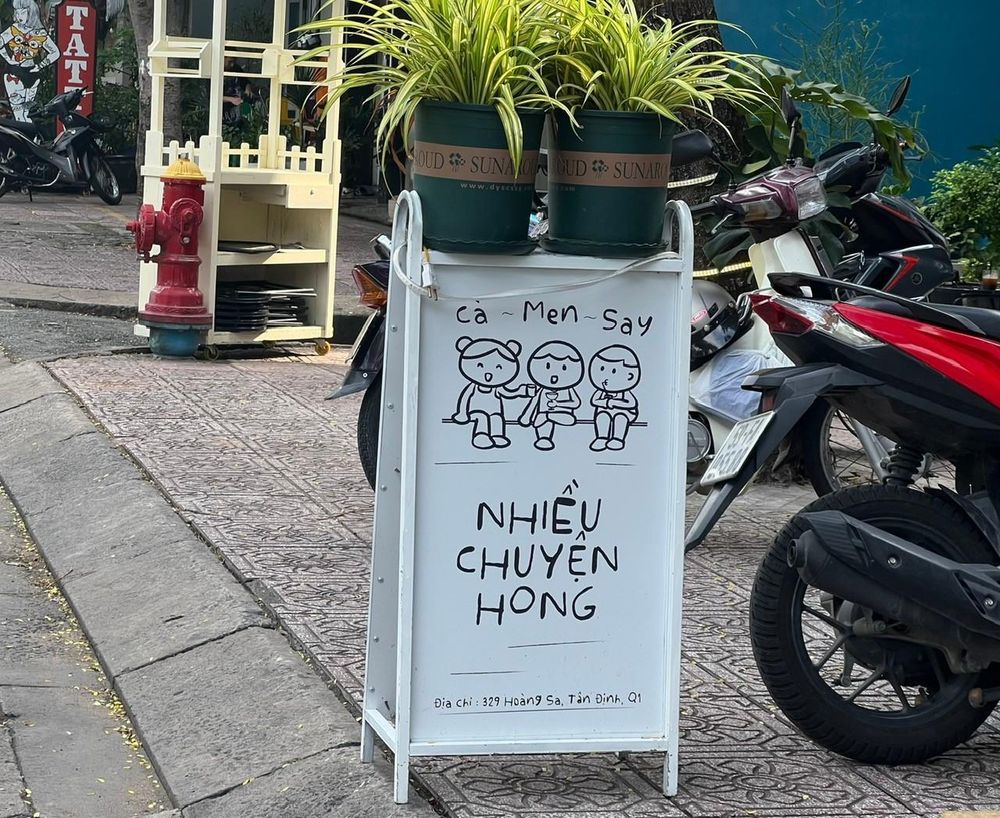 TAT
OUD SUNARO
www.dy
OUD SUNARO
cà ~ Men ~ Say
NHIỀU
CHUYỆN
HONG
Địa chỉ : 329 Hoàng Sa, Tân Định, Q1